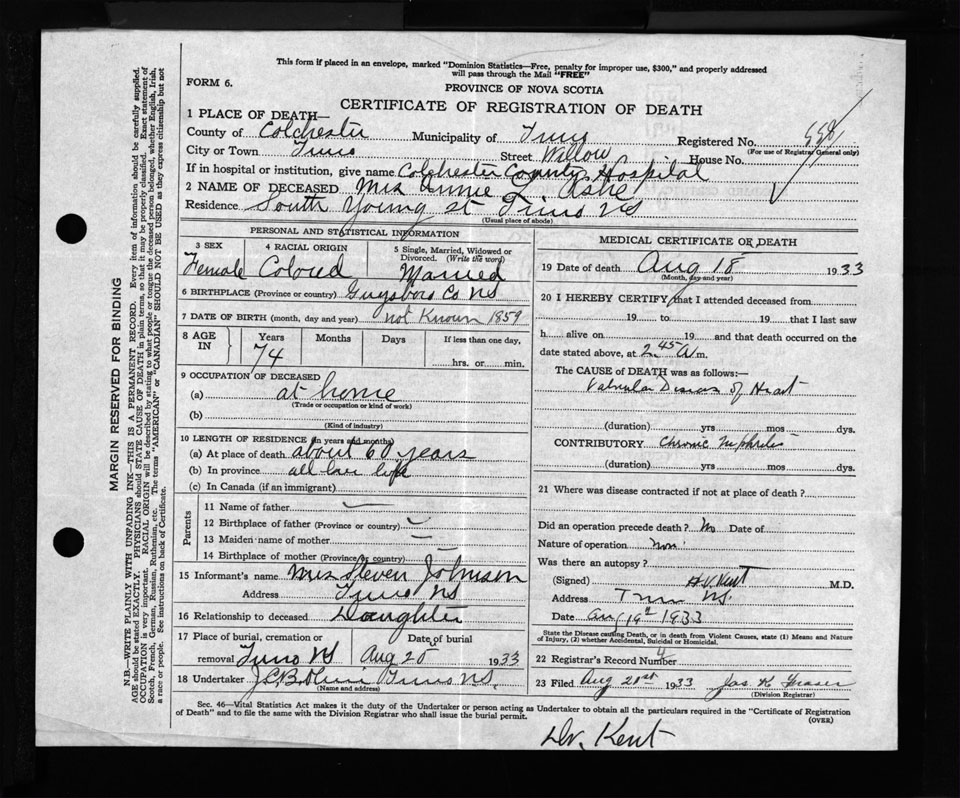 This form if placed in an envelope, marked "Dominion Statistics—Free, penalty for improper use, $300," and properly addressed
will pass through the Mail "FREE"
FORM 6.
PROVINCE OF NOVA SCOTIA
CERTIFICATE OF REGISTRATION OF DEATH
1 PLACE OF DEATH—
County of Colchester Municipality of Truro Registered No.
(For use of Registrar General only)
City or Town Truro Street Willow House No.
If in hospital or institution, give name Colchester County Hospital
2 NAME OF DECEASED Mrs Annie L Ashe
Residence South Young St Truro NS
(Usual place of abode)
PERSONAL AND STATISTICAL INFORMATION
3 SEX 4 RACIAL ORIGIN 5 Single, Married, Widowed or Divorced. (Write the word)
Female Colored Married
6 BIRTHPLACE (Province or country) Guysboro Co NS
7 DATE OF BIRTH (month, day and year) not Known 1859
8 AGE IN Years Months Days If less than one day,
74 hrs. or min.
9 OCCUPATION OF DECEASED
(a) at home
(Trade or occupation or kind of work)
(b)
(Kind of industry)
10 LENGTH OF RESIDENCE (in years and months)
(a) At place of death about 60 years
(b) In province all her life
(c) In Canada (if an immigrant)
Parents
11 Name of father —
12 Birthplace of father (Province or country) —
13 Maiden name of mother —
14 Birthplace of mother (Province or country) —
15 Informant's name Mrs Steven Johnson
Address Truro NS
16 Relationship to deceased Daughter
17 Place of burial, cremation or Date of burial
removal Truro NS Aug 20 1933
18 Undertaker Truro N.S.
(Name and address)
MEDICAL CERTIFICATE OR DEATH
19 Date of death Aug 18 1933
(Month, day and year)
20 I HEREBY CERTIFY, that I attended deceased from
19 to 19 that I last saw
h alive on 19 and that death occurred on the
date stated above, at 2.45 A m.
The CAUSE of DEATH was as follows:—
Valvular Disease of Heart
(duration) yrs mos dys.
CONTRIBUTORY Chronic Nephritis
(duration) yrs mos dys.
21 Where was disease contracted if not at place of death?
Did an operation precede death? No Date of
Nature of operation
Was there an autopsy?
(Signed) H.V. Kent M.D.
Address Truro NS.
Date Aug 19th 1933
State the Disease causing Death, or in death from Violent Causes, state (1) Means and Nature
of Injury, (2) whether Accidental, Suicidal or Homicidal.
22 Registrar's Record Number
23 Filed Aug 21st 1933 Jas K Fraser
(Division Registrar)
Sec. 46—Vital Statistics Act makes it the duty of the Undertaker or person acting as Undertaker to obtain all the particulars required in the "Certificate of Registration
of Death" and to file the same with the Division Registrar who shall issue the burial permit.
(OVER)
Dr. Kent
MARGIN RESERVED FOR BINDING
N.B.—WRITE PLAINLY WITH UNFADING INK—THIS IS A PERMANENT RECORD. Every item of information should be carefully supplied.
AGE should be stated EXACTLY. PHYSICIANS should STATE CAUSE OF DEATH in plain terms, so that it may be properly classified. Exact statement of
OCCUPATION is very important. RACIAL ORIGIN will be described by stating to what people or tongue the deceased person belonged, whether English, Irish,
Scotch, French, German, Russian, Ruthenian, etc. The terms "AMERICAN" or "CANADIAN" SHOULD NOT BE USED as they express citizenship but not
a race or people. See instructions on back of Certificate.